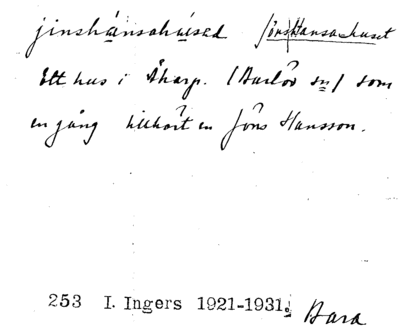 jinshánsahúsed Jöns Hansa-huset
Ett hus i Åkarp. (Burlöv sn) som
en gång tillhört en Jöns Hansson.
253 I. Ingers 1921-1931. Bara